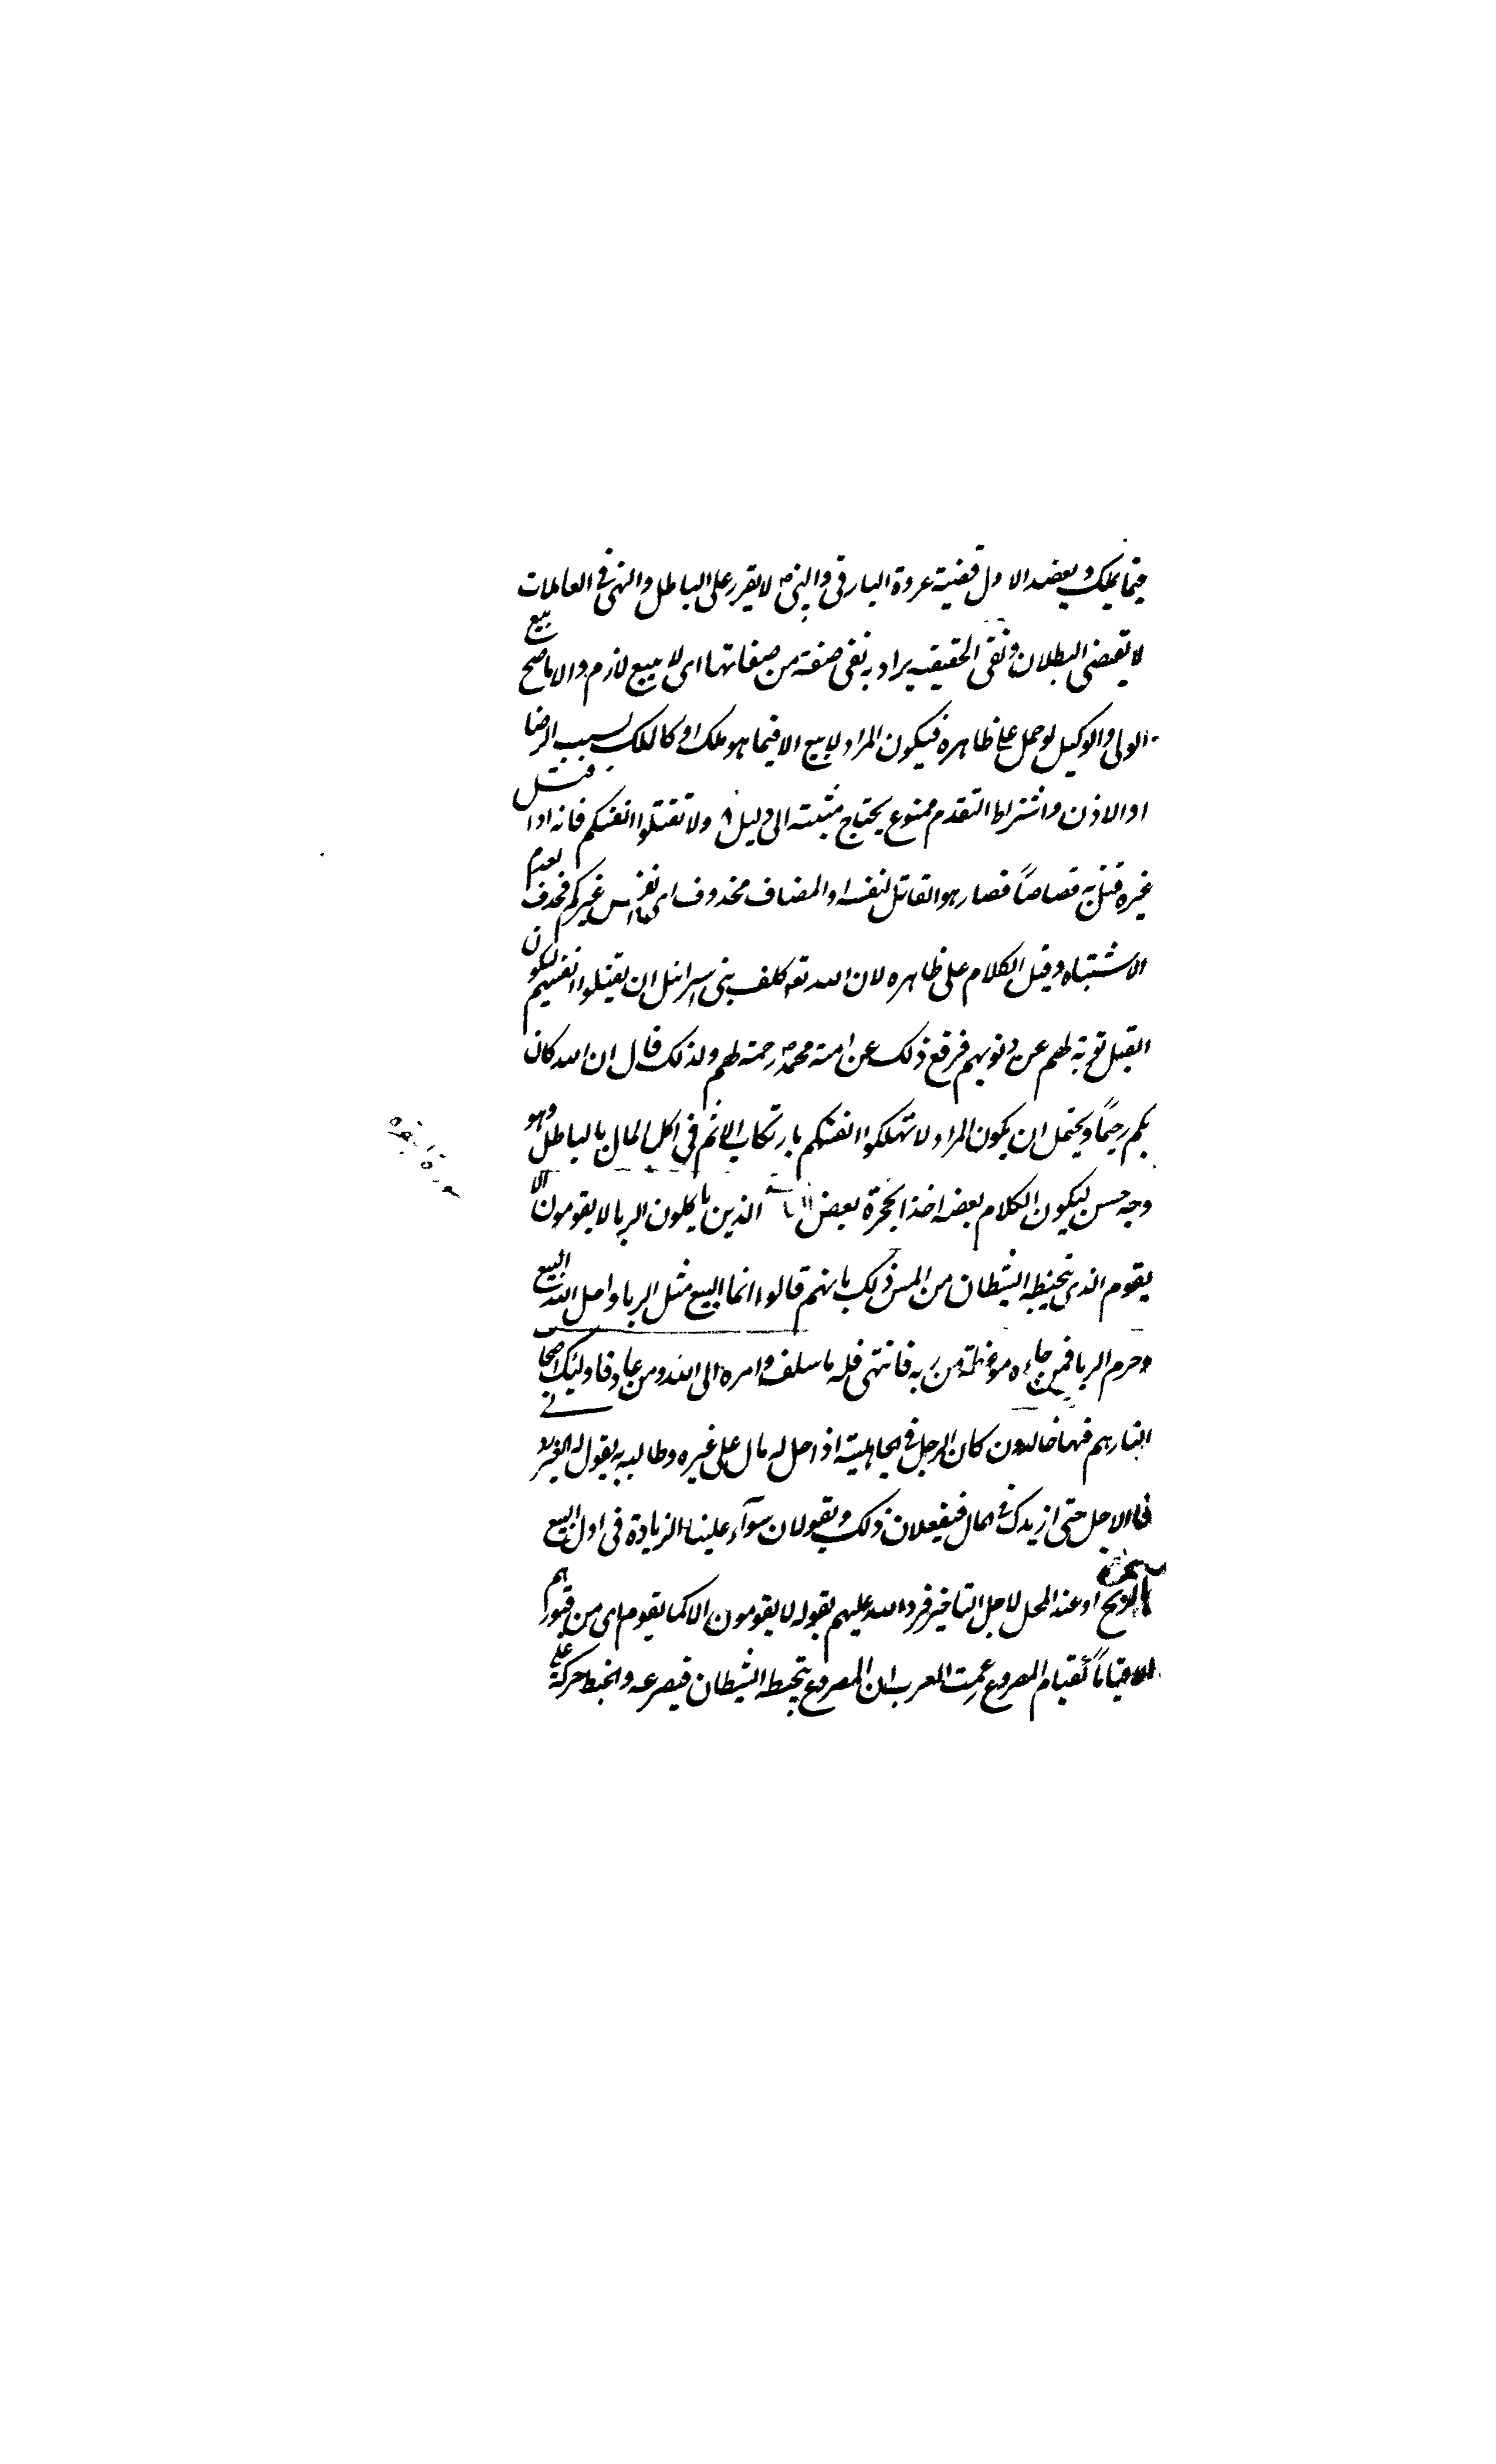 فيما يملك ويعضد الاول قضية عروة البارقي والنبي ص لا يقرر على الباطل والنهي في المعاملات
لا تقتضي البطلان ونفي الحقيقة يراد به نفي صفة من صفاتها اى لا بيع لازم والا ما صح بيع
الولي والوكيل لو حمل على ظاهره فيكون المراد لا بيع الا فيما هو ملك او كالملك بسبب الرضا
او الاذن واشتراط التقدم ممنوع يحتاج مثبته الى دليل ولا تقتلوا انفسكم فانه اذا قتل
غيره قتل به قصاصاً فصار هو القاتل لنفسه او المضاف محذوف اى نفس غيركم فحذف لعدم
الاشتباه وقيل الكلام على ظاهره لان الله تع كلف بنى اسرائيل ان يقتلوا انفسهم ليكون
القتل توبة لهم عن ذنوبهم فرفع ذلك عن امة محمد ص رحمة لهم ولذلك قال ان الله كان
بكم رحيماً ويحتمل ان يكون المراد لا تهلكوا انفسكم بارتكاب الاثم في اكل المال بالباطل وهو
وجه حسن ليكون الكلام بعضه اخذ الحجزة بعض الذين ياكلون الربا لا يقومون الا
يقوم الذى يتخبطه الشيطان من المس ذلك بانهم قالوا انما البيع مثل الربا واحل الله البيع
وحرم الربا فمن جاءه موعظة من ربه فانتهى فله ما سلف وامره الى الله ومن عاد فاولئك اصحا
النار هم فيها خالدون كان الرجل في الجاهلية اذا حل له مال على غيره وطالبه به يقول له الغريم زد
في الاجل حتى ازيدك في المال فيفعلان ذلك ويقولان سوآء علينا الزيادة في اول البيع
او عند المحل لاجل التاخير فرد الله عليهم بقوله لا يقومون الا كما يقوم اى من قبورهم
الا قياماً كقيام المصروع زعمت العرب ان المصروع يتخبطه الشيطان فيصرعه والخبط حركة على